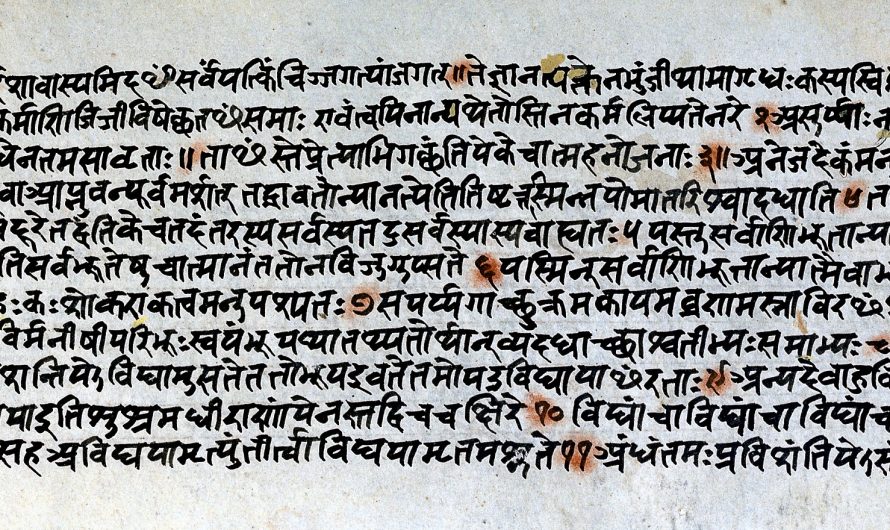 शावास्यमिदꣳसर्वंयत्किंचिज्जगत्यांजगत्॥तेनत्यक्तेनभुंजीथामागृधःकस्यस्वि
कर्माणिजिजीविषेच्छतꣳसमाः एवंत्वयिनान्यथेतोस्तिनकर्मलिप्यतेनरे २ असुर्य्याः न
येनतमसावृताः॥ताꣳस्तेप्रेत्याभिगच्छंतियेकेचात्महनोजनाः ३॥अनेजदेकंमन
वाआप्नुवन्पूर्वमर्शत् तद्धावतोन्यानत्येतितिष्टत्तस्मिन्नपोमातरिश्वादधाति ४ त
द्दूरेतद्वंतिकेचतदंतरस्यसर्वस्यतदुसर्वस्यास्यबाह्यतः ५ यस्तुसर्वाणिभूतान्या
तिसर्वभूतेषुचात्मानंततोनविजुगुप्सते ६ यस्मिन्सर्वाणिभूतान्यात्मैवाभू
हःकःशोकएकत्वमनुपश्यतः ७ सपर्य्यगाच्छुक्रमकायमव्रणमस्नाविरꣳ
विर्मनीषीपरिभूःस्वयंभूर्याथातथ्यतोर्थान्व्यदधाच्छाश्वतीभ्यःसमाभ्यः
शन्तियेऽविद्यामुसतेततोभूयइवतेतमोयउविद्यायाꣳरताः ९ अन्यदेवाहुर्वि
याइतिशुश्रुमधीराणांयेनस्तद्विचचक्षिरे १० विद्यांचाविद्यांचाविद्यांच
सहअविद्ययामृत्युंतीर्त्वाविद्ययामृतमश्नुते ११ अंधंतमःप्रविशंतियेऽसं